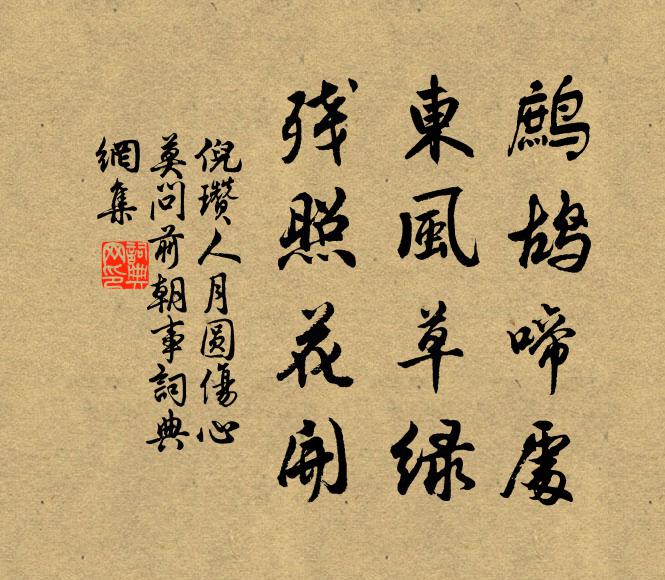 鷓鴣啼處
東風草緑
残照花開
倪瓚人月圓傷心
莫問前朝事詞典
網集
詞典
网印